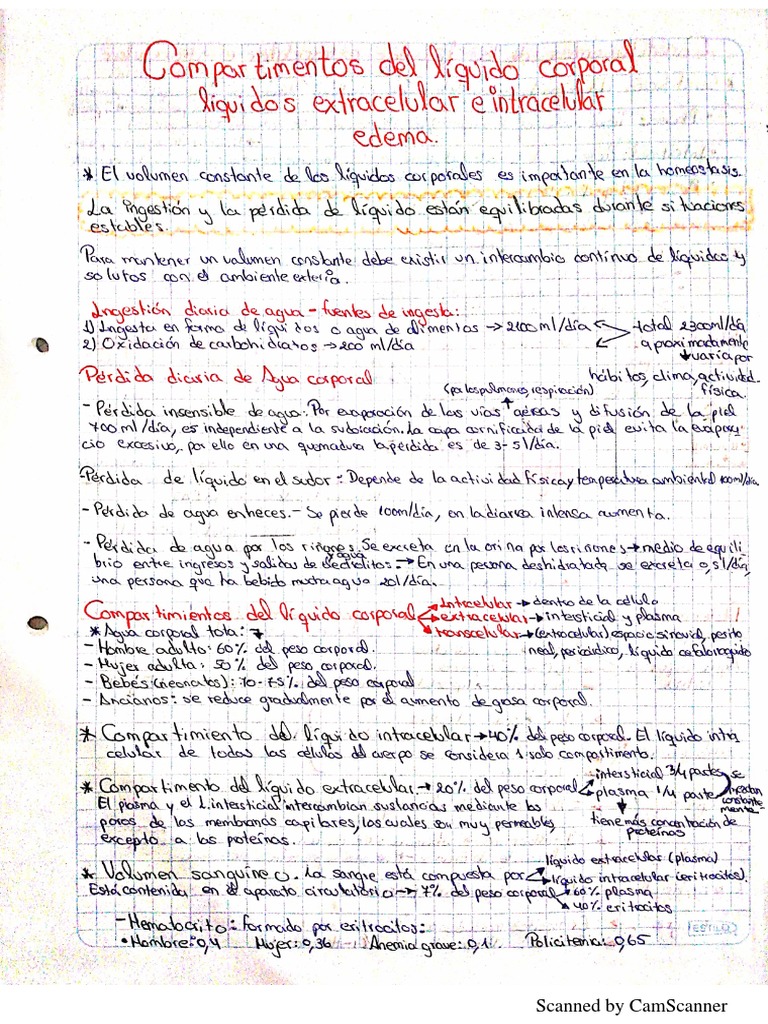 Compartimentos del líquido corporal
líquidos extracelular e intracelular
edema.
* El volumen constante de los líquidos corporales es importante en la homeostasis.
La ingestión y la pérdida de líquido están equilibradas durante situaciones
estables.
Para mantener un volumen constante debe existir un intercambio continuo de líquidos y
solutos con el ambiente externo.
Ingestión diaria de agua - fuentes de ingesta:
1) Ingesta en forma de líquidos o agua de alimentos → 2100 ml/día
total 2300ml/día
2) Oxidación de carbohidratos → 200 ml/día
aproximadamente
↓ varía por
hábitos, clima, actividad
física.
Pérdida diaria de Agua corporal
(por los pulmones, respiración)
- Pérdida insensible de agua: Por evaporación de las vías aéreas y difusión de la piel
700 ml/día, es independiente a la sudoración. La capa cornificada de la piel evita la evapora
ción excesiva, por ello en una quemadura la pérdida es de 3-5 l/día.
- Pérdida de líquido en el sudor: Depende de la actividad física y temperatura ambiental 100ml/día.
- Pérdida de agua en heces. - Se pierde 100ml/día, en la diarrea intensa aumenta.
- Pérdida de agua por los riñones. Se excreta en la orina por los riñones → medio de equili
brio entre ingresos y salidas de electrolitos → En una persona deshidratada se excreta 0,5 l/día,
una persona que ha bebido mucha agua 20 l/día.
Compartimientos del líquido corporal
Intracelular → dentro de la célula
extracelular → intersticial y plasma
transcelular → (extracelular) espacio sinovial, perito
neal, pericárdico, líquido cefalorraquído
* Agua corporal total:
- Hombre adulto: 60% del peso corporal.
- Mujer adulta: 50% del peso corporal.
- Bebés (neonatos): 70-75% del peso corporal
- Ancianos: se reduce gradualmente por el aumento de grasa corporal.
* Compartimiento del líquido intracelular → 40% del peso corporal. El líquido intra
celular de todas las células del cuerpo se considera 1 solo compartimento.
* Compartimento del líquido extracelular → 20% del peso corporal
intersticial 3/4 partes
plasma 1/4 parte
se
constante
mente
tiene más concentración de
proteínas
El plasma y el l. intersticial intercambian sustancias mediante los
poros de las membranas capilares, los cuales son muy permeables,
excepto a las proteínas.
* Volumen sanguíneo. La sangre está compuesta por
líquido extracelular (plasma)
líquido intracelular (eritrocitos).
Está contenida en el aparato circulatorio → 7% del peso corporal
60% plasma
40% eritrocitos
- Hematocrito: formado por eritrocitos:
• Hombre: 0,4 Mujer: 0,36 Anemia grave: 0,1 Policitemia: 0,65
Scanned by CamScanner